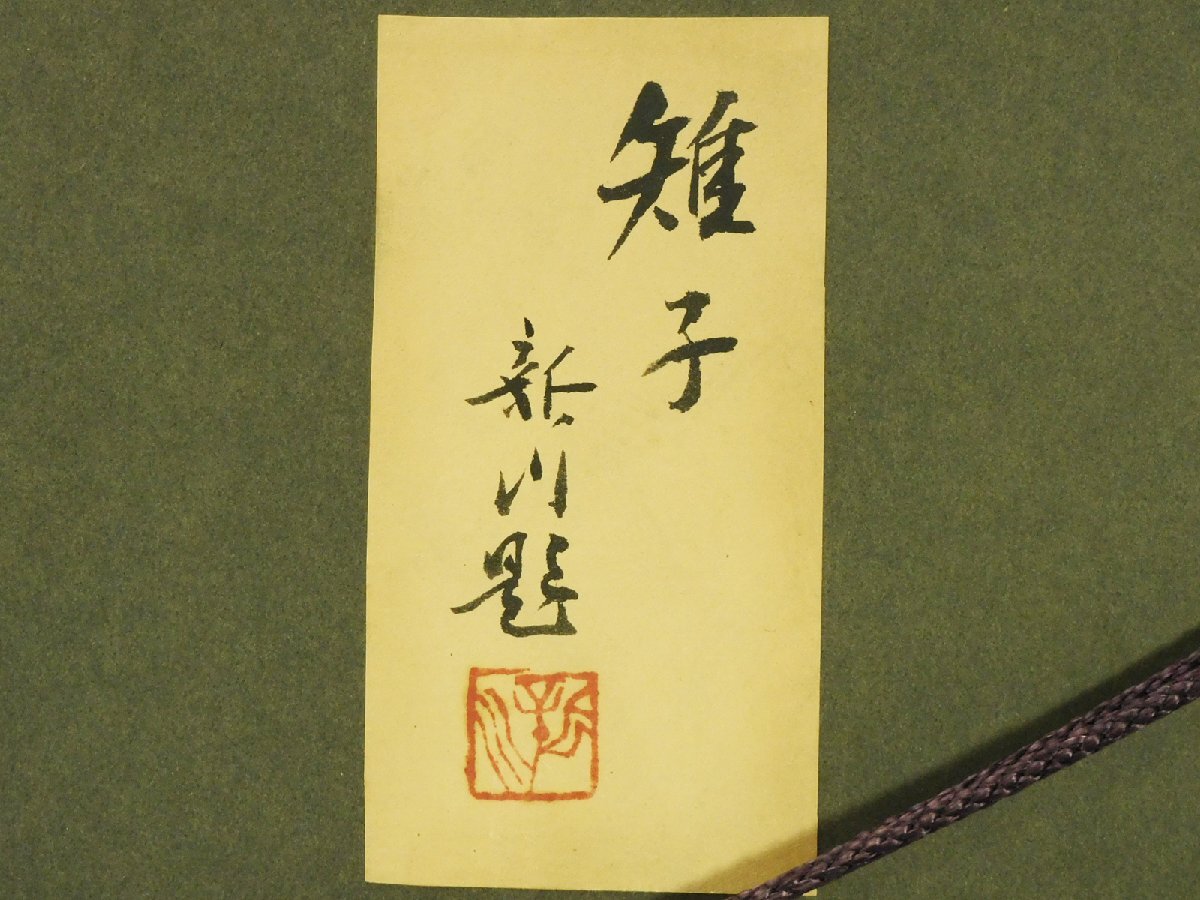 雉子
新川題